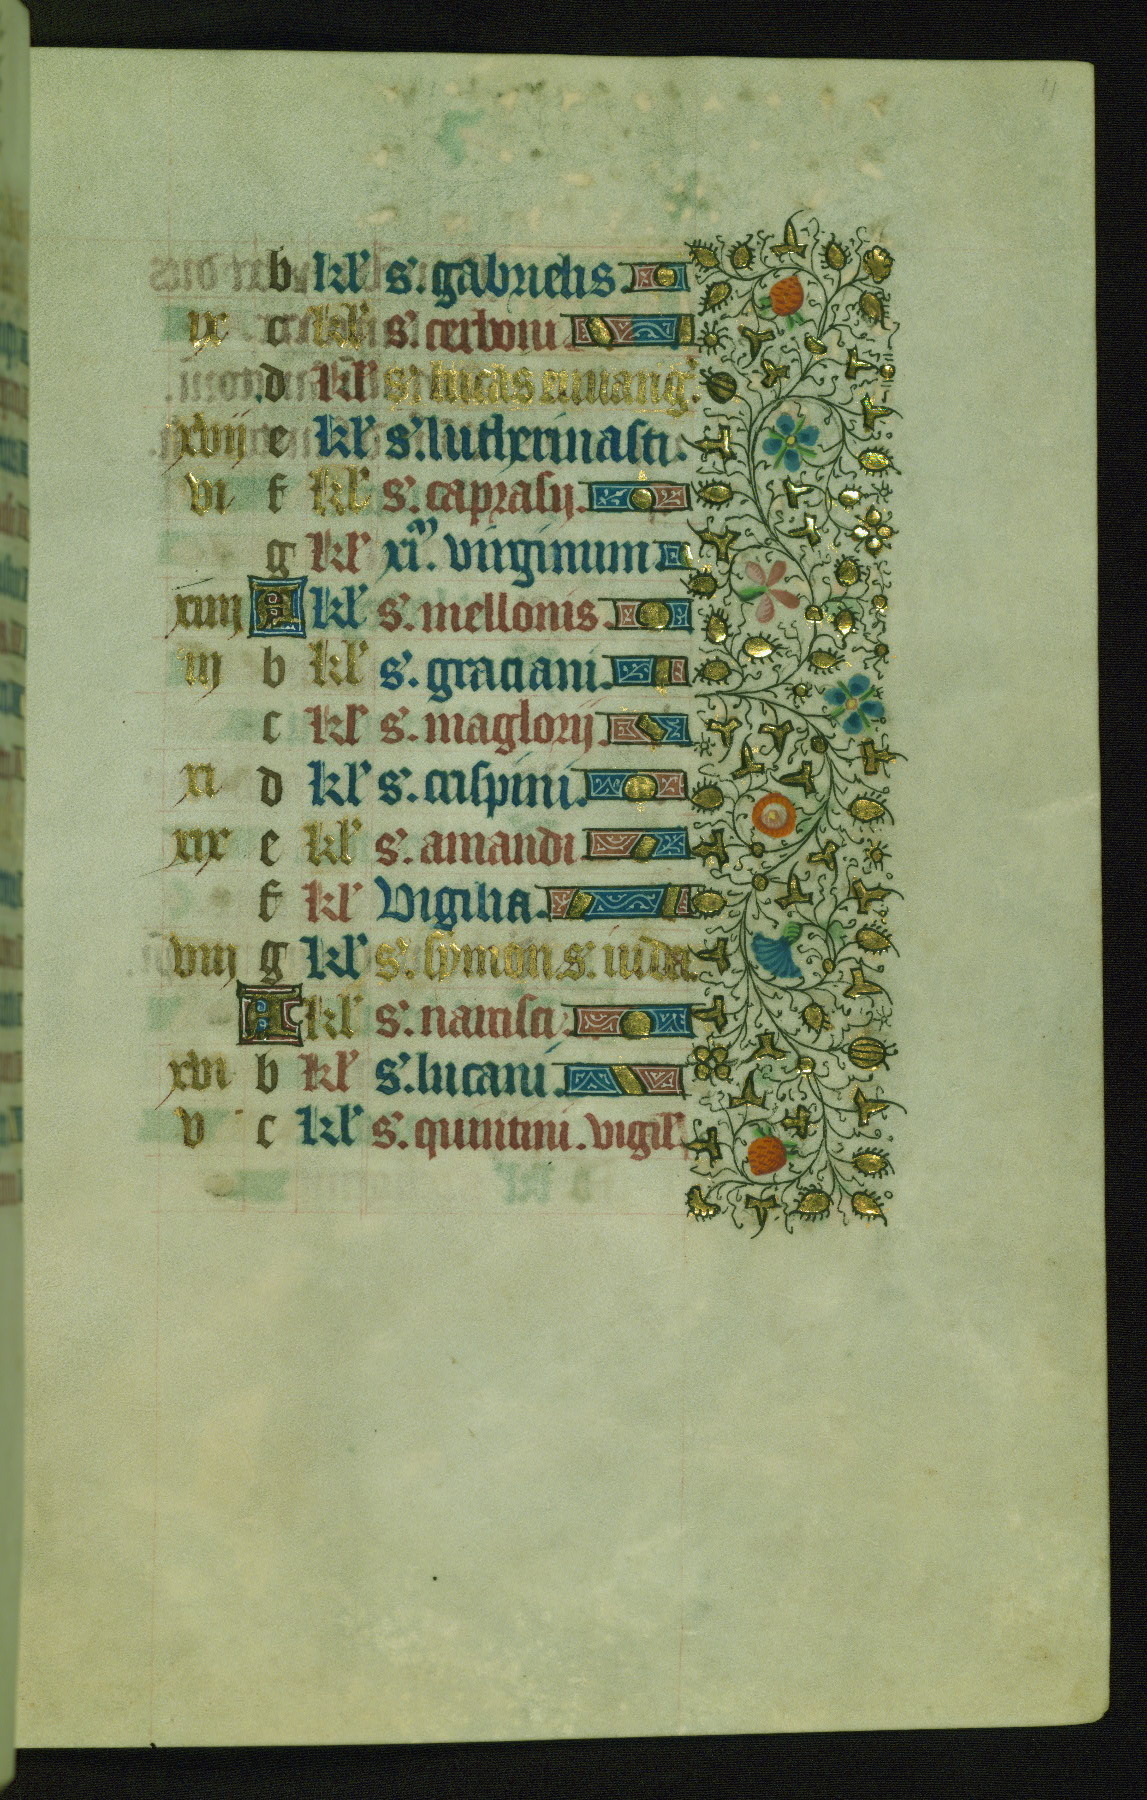 b kl' s. gabrielis.
ix c kl' s. cerboni
d kl' s. lucas euuang'.
xvii e kl' s.
vi f kl' s. caprasij.
g kl' xi.m virginum
xiiij A kl' s. mellonis.
iij b kl' s. graciani.
c kl' s. maglorij.
xi d kl' s. crispini.
xix e kl' s. amandi
f kl' Vigilia.
viij g kl' s. symon. s. iuda.
A kl' s. narcisci.
xvi b kl' s. lucani.
v c kl' s. quintini. vigil'.
11